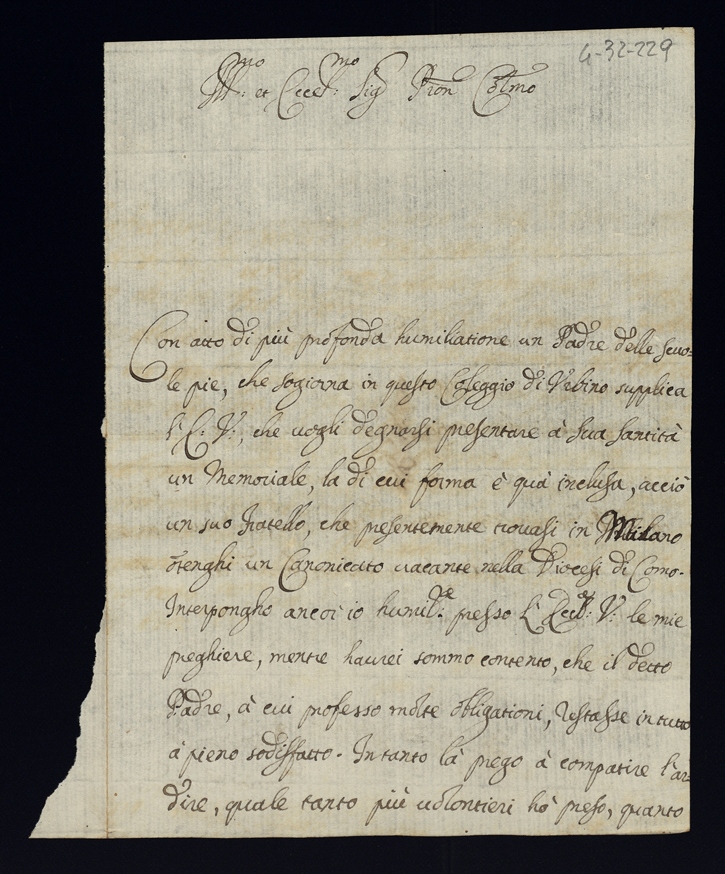 4-32-229
Ill.mo et Ecce.mo Sig Pron Colmo
Con atto di più profonda humiliatione un Padre delle scuo=
le pie, che sogiorna in questo Coleggio di Vrbino supplica
l'E: V:, che vogli degnarsi presentare à Sua Santità
un Memoriale, la di cui forma è quà inclusa, acciò
un suo fratello, che pesentemente trouasi in Milano
ottenghi un Canonicato vacante nella Diocesi di Como.
Interpongho ancor io humil:te presso l'Ecc: V: le mie
preghiere, mentre haurei sommo contento, che il detto
Padre, à cui professo molte obligationi, restasse in tutto
à pieno sodisfatto. Intanto la prego à compatire l'ar=
dire, quale tanto più volontieri hò preso, quanto